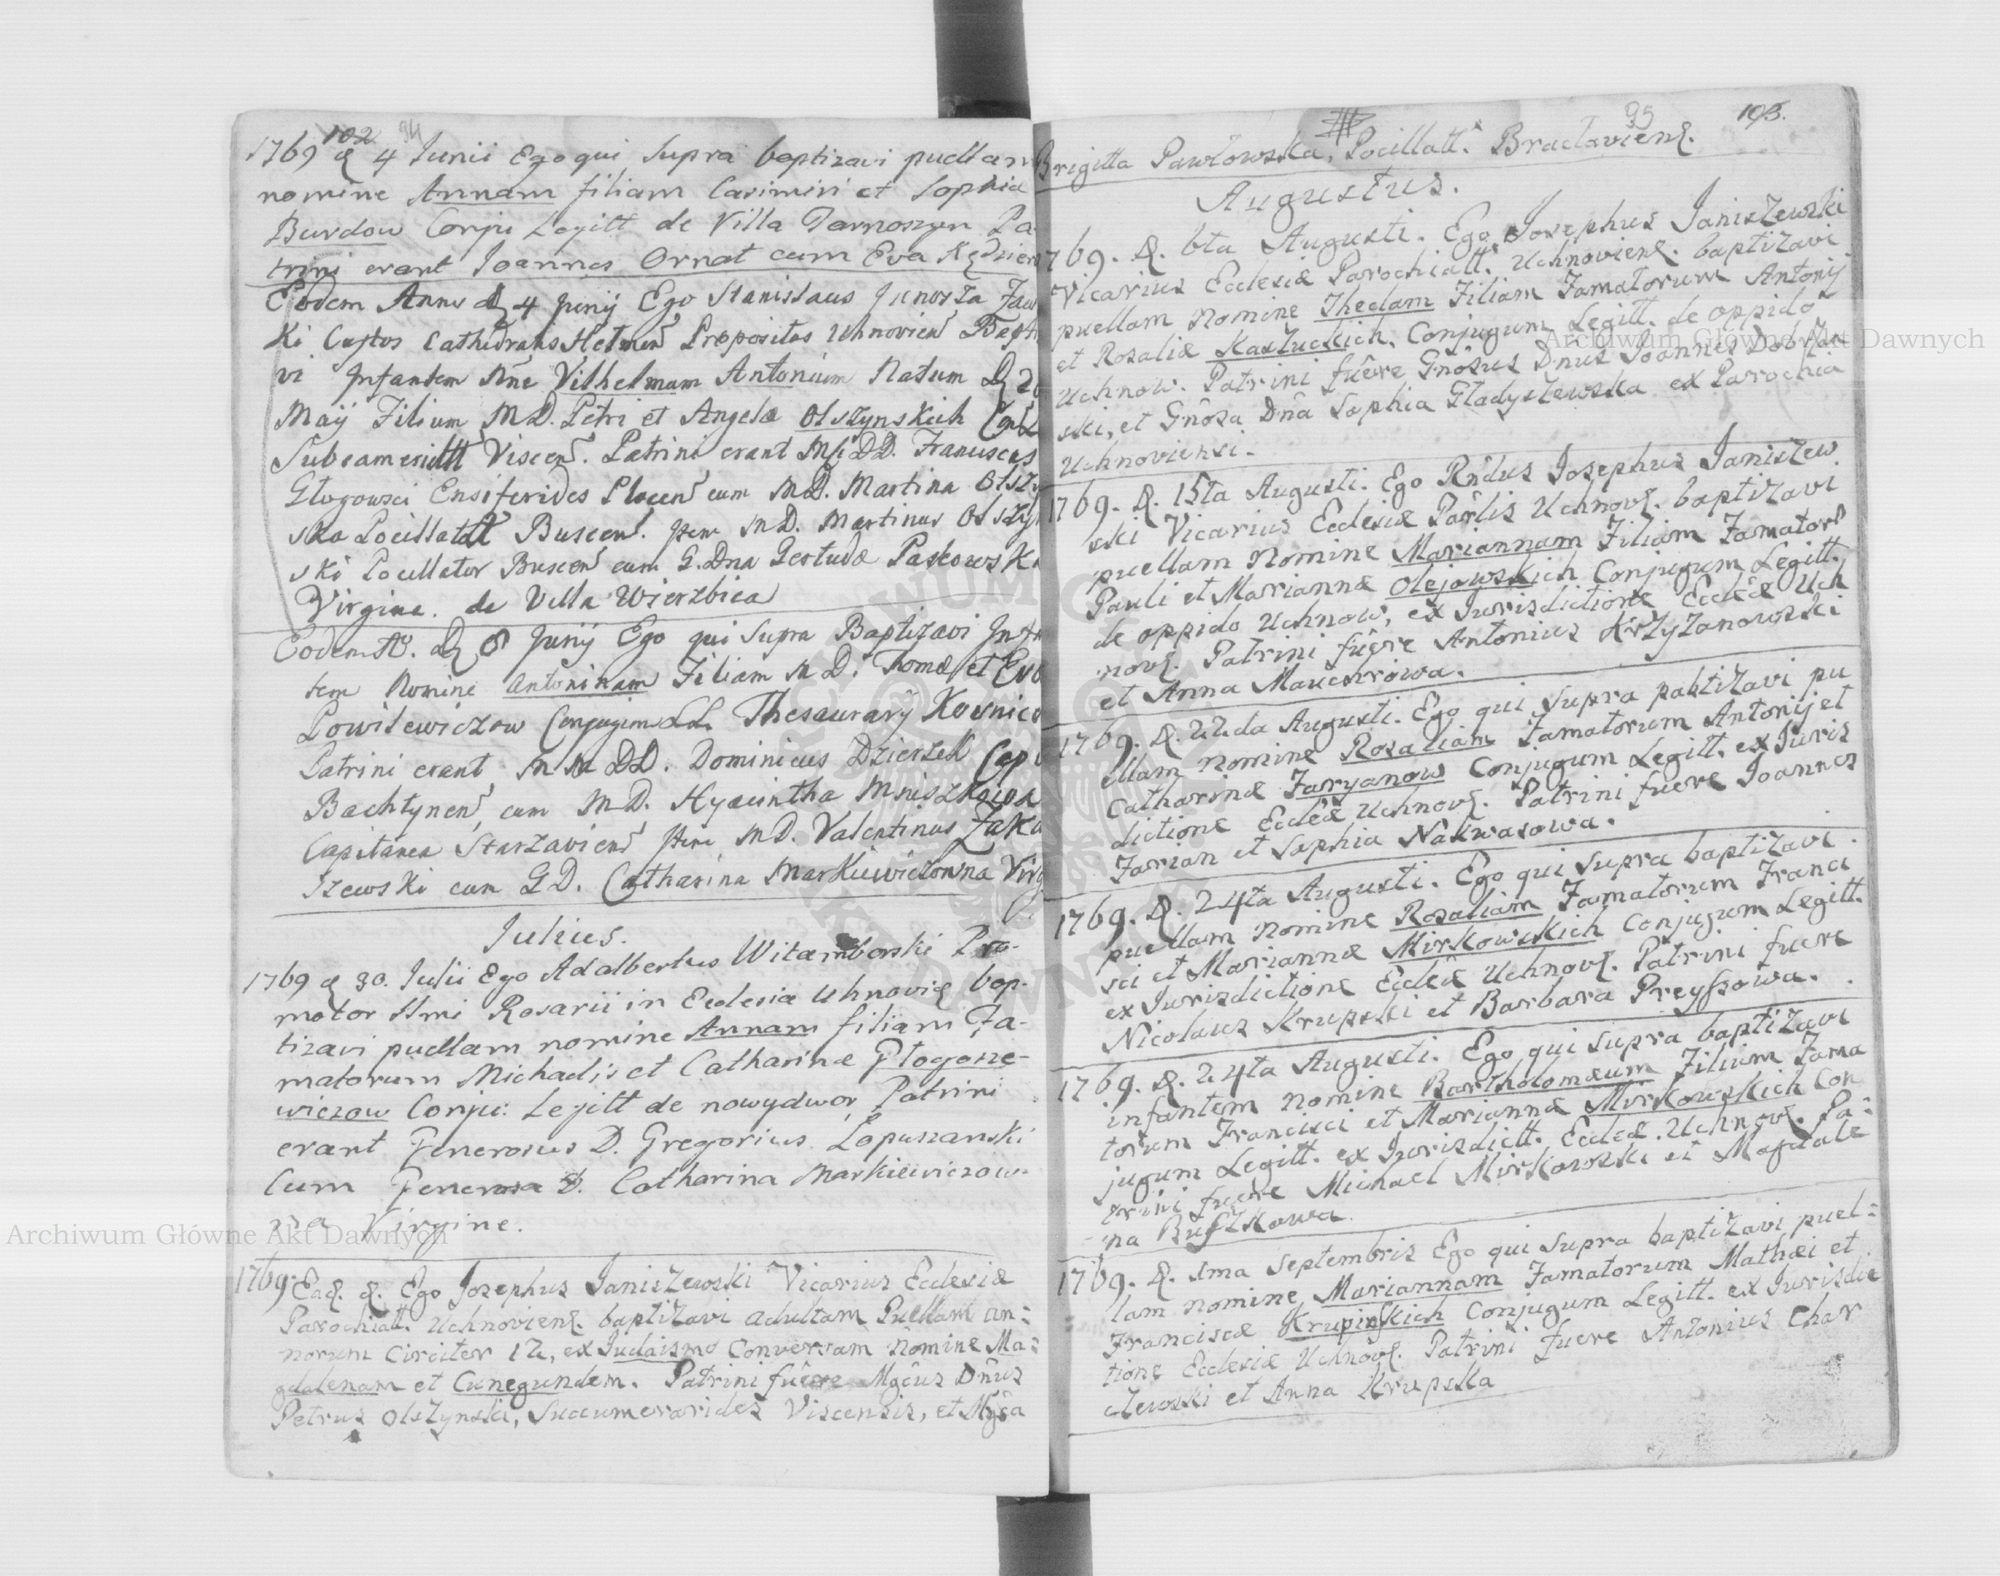 102 94
1769 d 4 Junii Ego qui supra baptizavi puellam
nomine Annam filiam Casimiri et Sophia
Burdow Conju Legitt de Villa Tarnoszyn Pa
trini erant Joannes Ornat cum Eva
Eodem Anno d 4 Junij Ego Stanislaus Junosza
ki Custos Cathedralis Præpositus Uhnovien
vi Infantem Nne Vilhelmum Antonium Natum d
Maij Filium M D. Petri et Angelæ Olszynskich
Patrini erant DD. Franciscus
Głogowsci Ensiferides cum M D. Martina
ska Buscen. Item M D. Martinus
ski Pocillator Buscen cum G. Dna Paskowsk
Virgine. de Villa Wierzbica
Eodem Ao. d 8 Junij Ego qui supra Baptizavi
tem Nomine Antoninam Filiam M D. Thomæ et
Powilewiczow Conjugum LL. Thesaurarij
Patrini erant M M DD. Dominicus Dzierzek
Bachtynen, cum M D. Hyacintha Mniszkowa
Capitanea Item M D. Valentinus
szewski cum G D. Catharina Markiewiczowna Virg
Julius.
1769 d 30. Julii Ego Adalbertus Witamborski Pro-
motor Smi Rosarii in Ecclesia Uhnoviæ bap-
tizavi puellam nomine Annam filiam Fa-
matorum Michaelis et Catharinæ Głogosze-
wiczow Conju: Legitt de nowydwor Patrini
erant Generosus D. Gregorius Łopuszanski
Cum Generosa D. Catharina Markiewiczow
na Virgine.
1769. Ead. d. Ego Josephus Janiszewski Vicarius Ecclesiæ
Parochiatt. Uchnoviens. baptizavi adultam Puellam an:
norum circiter 12, ex Judaismo Conversam Nomine Ma:
gdalenam et Cunegundem. Patrini fuêre Mgcus Dnus
Petrus Olszynski, Viscensis, et Mgca
95 103.
Brigitta Pawłowska, Pocillatt. Bracłaviens.
Augustus.
1769. d. 6ta Augusti. Ego Josephus Janiszewski
Vicarius Ecclesiæ Parochiatt. Uchnoviens. baptizavi
puellam nomine Theclam Filiam Famatorum Antonij
et Rosaliæ Conjugum Legitt. de oppido
Uchnow. Patrini fuêre Gnosus Dnus Joannes
ski, et Gnosa Dna Sophia Gładyszewska ex Parochia
Uchnoviensi.
1769. d. 15ta Augusti. Ego Rndus Josephus Janiszew
ski Vicarius Ecclesiæ Parlis Uchnovs. baptizavi
puellam nomine Mariannam Filiam Famator
Pauli et Mariannæ Olejowskich Conjugum Legitt.
de oppido Uchnow, ex Jurisdictione Ecclæ Uch
novs. Patrini fuêre Antonius Krzyzanowski
et Anna
1769. d. 22da Augusti. Ego qui supra pabtizavi pu
ellam nomine Rosaliam Famatorum Antonij et
Catharinæ Faryanow Conjugum Legitt. ex Juris
dictione Ecclæ Uchnovs. Patrini fuere Joannes
Farian et Sophia Nakwasowa.
1769. d. 24ta Augusti. Ego qui supra baptizavi
puellam nomine Rosaliam Famatorum Franci
sci et Mariannæ Mirkowskich Conjugum Legitt.
ex Jurisdictione Ecclæ Uchnovs. Patrini fuere
Nicolaus Krupski et Barbara Preyssowa.
1769. d. 24ta Augusti. Ego qui supra baptizavi
infantem nomine Bartholomæum Filium Fama
torum Francisci et Mariannæ Mirkowskich Con
jugum Legitt. ex Jurisdictt. Ecclæ. Uchnovs. Pa:
trini fuere Michael Mirkowski et Magdale
na Buszkowa.
1769. d. 1ma Septembris Ego qui supra baptizavi puel:
lam nomine Mariannam Famatorum Mathæi et
Franciscæ Krupinskich Conjugum Legitt. ex Jurisdic
tione Ecclesiæ Uchnovs. Patrini fuere Antonius Char
czewski et Anna Krupska
Archiwum Główne Akt Dawnych
Archiwum Główne Akt Dawnych